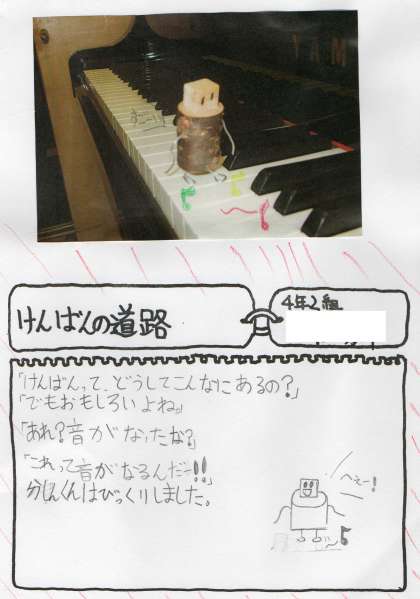 すごーい!
けんばんの道路
4年2組
「けんばんって、どうしてこんなにあるの?」
「でもおもしろいよね。」
「あれ?音がなったな?」
「これって音がなるんだー!!」
分しんくんはびっくりしました。
へぇー!